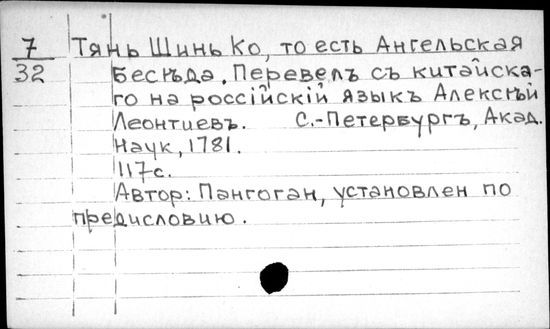 7 Тянь Шинь Ко, то есть Ангельская
32 Бесѣда. Перевелъ съ китайска-
го на россійскій языкъ Алексѣй
Леонтиевъ. С.-Петербургъ, Акад.
Наук, 1781.
117с.
Автор: Пангоган, установлен по
предисловию.